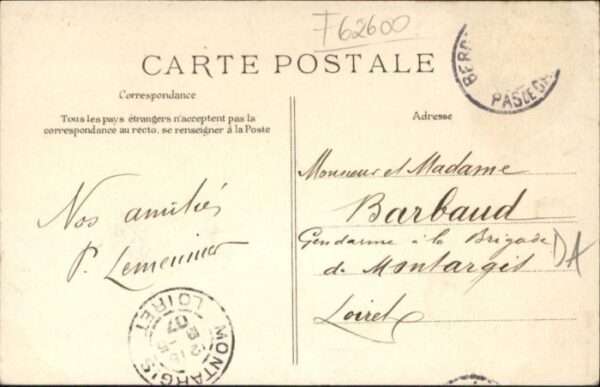 F62600
CARTE POSTALE
BERC
PAS DE C
Correspondance
Tous les pays étrangers n'acceptent pas la
correspondance au recto, se renseigner à la Poste
Adresse
Nos amitiés
P. Lemeunier
Monsieur et Madame
Barbaud
Gendarme à la Brigade
DA
de Montargis
Loiret
MONTARGIS
LOIRET